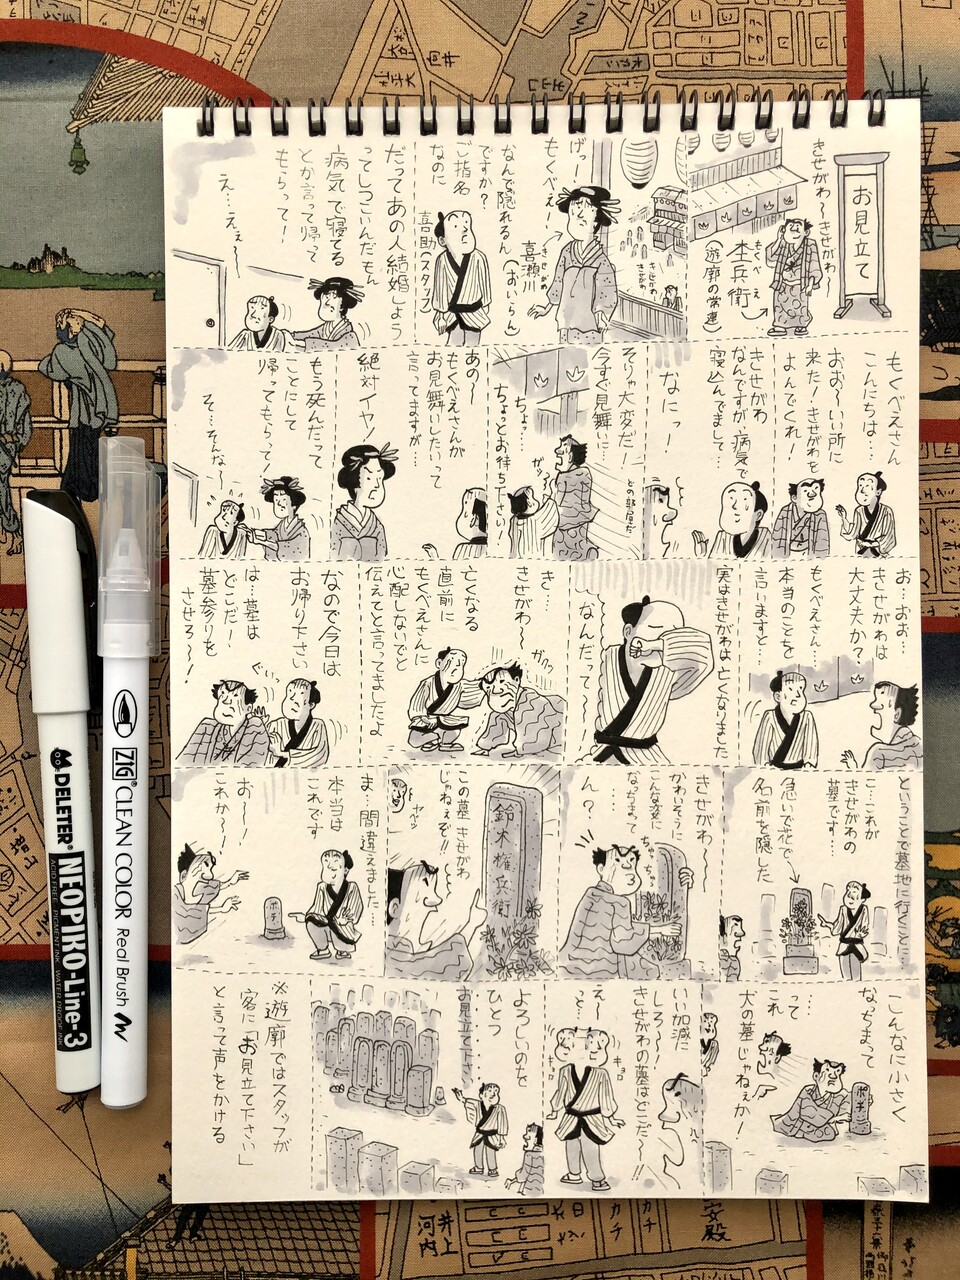 お見立て
きせがわ〜きせがわ〜
もくべえ
杢兵衛
(遊廓の常連)
きせがわ
きせがわ
げっ!
もくべえ!
きせがわ
喜瀬川(おいらん)
なんで隠れるん
ですか?
ご指名
なのに
喜助(スタッフ)
だってあの人結婚しよう
ってしつこいんだもん
病気で寝てる
とか言って帰って
もらって!
え…ええ〜
もくべえさん
こんにちは…
おお〜いい所に
来た!きせがわを
よんでくれ!
きせがわ
なんですが、病気で
寝込んでまして…
なにっ!
そりゃ大変だ!
今すぐ見舞い…
どの部屋だ
ちょ…
ちょっとお待ち下さい
ガッ
あの〜
もくべえさんが
お見舞いしたいって
言ってますが…
絶対イヤ!
もう死んだって
ことにして
帰ってもらって!
そ…そんな〜
お…おお…
きせがわは
大丈夫か?
もくべえさん…
本当のことを
言いますと…
実はきせがわは亡くなりました
なんだって〜!
き…
きせがわ〜
ガクッ
亡くなる
直前に
もくべえさんに
心配しないでと
伝えてと言ってましたよ
なので今日は
お帰り下さい
ぐいっ
は…墓は
どこだ!
墓参りを
させろ〜!
ということで墓地に行くことに…
こ…これが
きせがわの
墓です…
急いで花で
名前を隠した
きせがわ〜
かわいそうに
こんな姿に
なっちまって
ん?
鈴木権兵衛
この墓きせがわ
じゃねぇぞ!!
ヤベッ
ま…間違えました…
本当は
これです
お〜!
これか〜!
ポチ
こんなに小さく
なっちまって
って…
これ
犬の墓じゃねぇか!
ポチ
いい加減に
しろ〜!
きせがわの墓はどこだ〜!!
え〜
っと…
キョロ
キョロ
よろしいのを
ひとつ
お見立て下さい
※遊廓ではスタッフが
客に「お見立て下さい」
と言って声をかける
DELETER NEOPIKO-Line-3
ACID FREE PIGMENT INK WATER PROOF INK
ZIG CLEAN COLOR Real Brush
向井
井上
河内
カチ
カチ